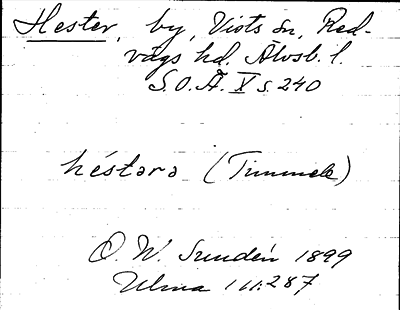 Hester, by, Vists sn, Red-
vägs hd. Älvsb. l.
S.O.Ä. X s. 240
héstərə (Timmele)
O. W. Sundén 1899
Ulma 111:287